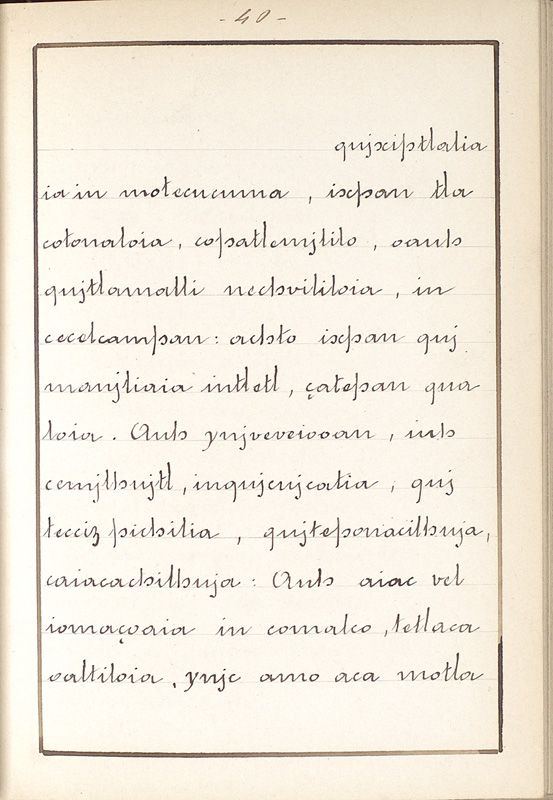 - 40 -
qujxiptlalia
ia in motecucuma, ixpan tla
cotonaloia, copatlemjlilo, oauh
qujtlamalli nechvililoia, in
cecelcampan: achto ixpan quj
manjliaia intletl, çatepan qua
loia. Auh ynjveveiooan, iuh
cemjlhujtl, inqujcujcatia, quj
tecciz pichilia, qujteponacilhuja,
caiacachilhuja: Auh aiac vel
iomaçoaia in comalco, tetlaca
oaltiloia, ynjc amo aca motla